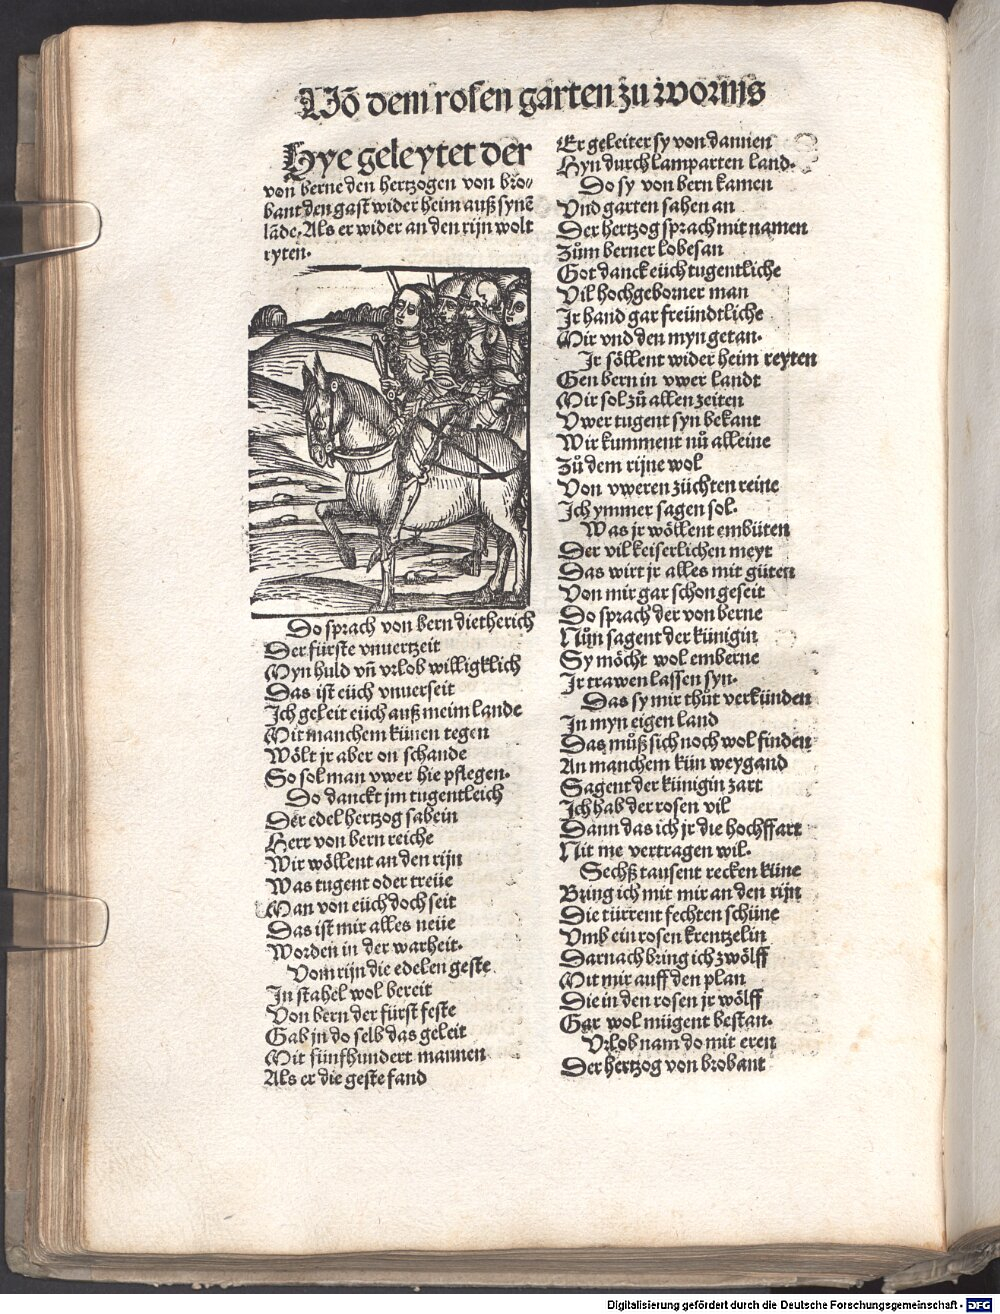 Uõ dem rosen garten zu worms
Hye geleytet der
von berne den hertzogen von bro⸗
bant den gast wider heim auß synē
lāde. Als er wider an den rijn wolt
ryten.
Do sprach von bern dietherich
Der fürste vnuertzeit
Myn huld vñ vrlob willigklich
Das ist eüch vnuerseit
Ich geleit eüch auß meim lande
Mit manchem künen tegen
Wölt jr aber on schande
So sol man vwer hie pflegen.
Do danckt jm tugentleich
Der edel hertzog sabein
Herr von bern reiche
Wir wöllent an den rijn
Was tugent oder treüe
Man von eüch doch seit
Das ist mir alles neüe
Worden in der warheit.
Vom rijn die edelen geste
In stahel wol bereit
Von bern der fürst feste
Gab jn do selb das geleit
Mit fünfhundert mannen
Als er die geste fand
Er geleiter sy von dannen
Hyn durch lamparten land.
Do sy von bern kamen
Vnd garten sahen an
Der hertzog sprach mit namen
Zům berner lobesan
Got danck eüch tugentliche
Vil hochgeborner man
Ir hand gar freündtliche
Mir vnd den myn getan.
Ir söllent wider heim reyten
Gen bern in vwer landt
Mir sol zů allen zeiten
Vwer tugent syn bekant
Wir kumment nů alleine
Zů dem rijne wol
Von vweren züchten reine
Ich ymmer sagen sol.
Was jr wöllent embüten
Der vil keiserlichen meyt
Das wirt jr alles mit güten
Von mir gar schon geseit
Do sprach der von berne
Nůn sagent der künigin
Sy möcht wol emberne
Ir trawen lassen syn.
Das sy mir thůt verkünden
In myn eigen land
Das můß sich noch wol finden
An manchem kün weygand
Sagent der künigin zart
Ich hab der rosen vil
Dann das ich jr die hochffart
Nit me vertragen wil.
Sechß tausent recken küne
Bring ich mit mir an den rijn
Die türrent fechten schüne
Vmb ein rosen krentzelin
Darnach bring ich zwölff
Mit mir auff den plan
Die in den rosen jr wölff
Gar wol mügent bestan.
Vrlob nam do mit eren
Der hertzog von brobant
Digitalisierung gefördert durch die Deutsche Forschungsgemeinschaft - DFG